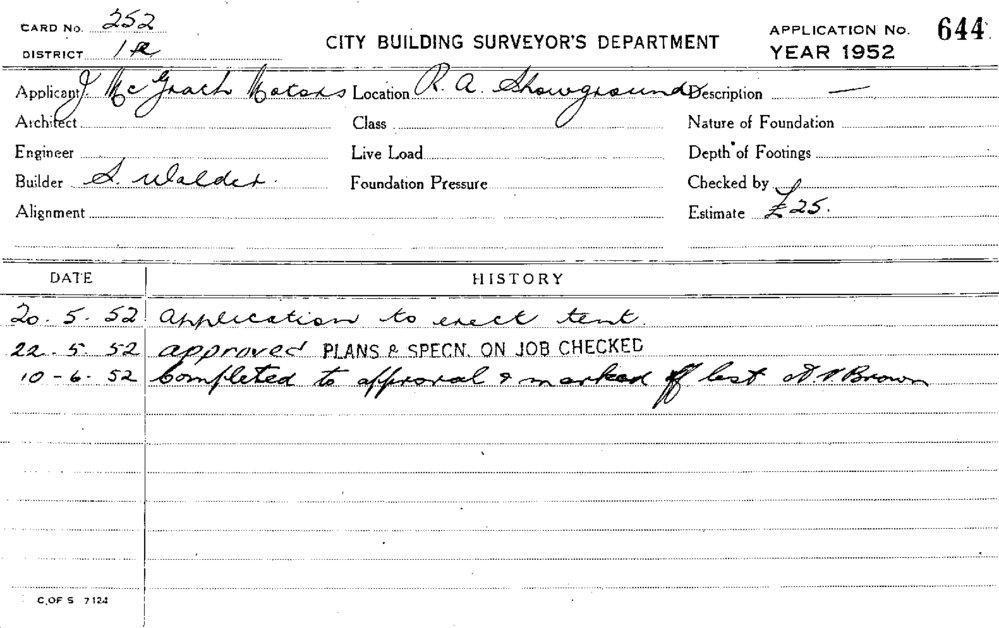 CARD No. 252
DISTRICT 1R
CITY BUILDING SURVEYOR'S DEPARTMENT
APPLICATION No. 644
YEAR 1952
Applicant J McGrath Motors Location R. A. Showground Description —
Architect Class Nature of Foundation
Engineer Live Load Depth of Footings
Builder S. Walder. Foundation Pressure Checked by
Alignment Estimate £25.
DATE HISTORY
20. 5. 52 Application to erect tent.
22. 5. 52 approved PLANS & SPECN. ON JOB CHECKED
10-6. 52 Completed to approval & marked off Brown
C.OF S 7124